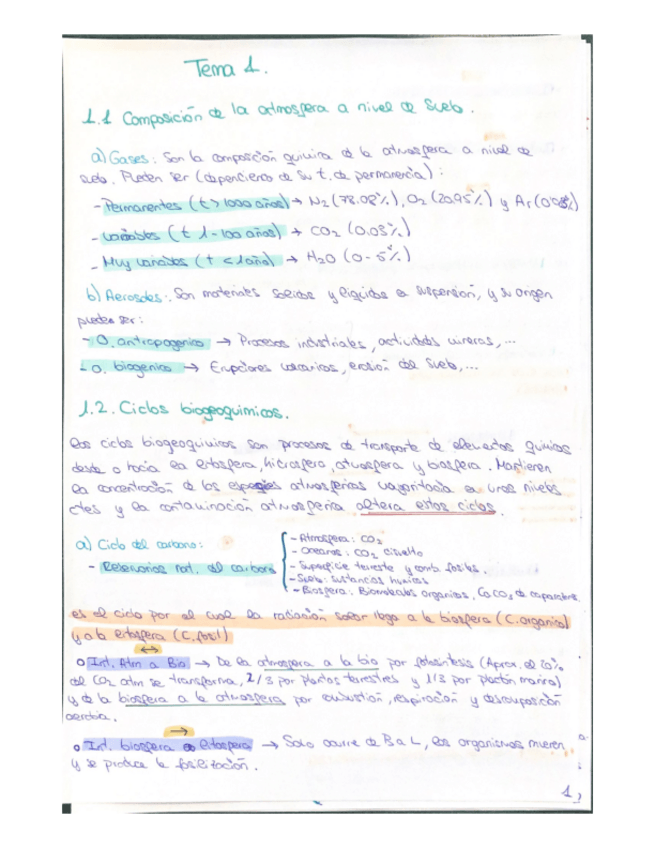 Tema 1.
1.1 Composición de la atmosfera a nivel de suelo.
a) Gases: Son la composición quimica de la atmosfera a nivel de
suelo. Pueden ser (dependiendo de su t. de permanencia):
- Permanentes (t > 1000 años) → N2 (78.08%), O2 (20.95%) y Ar (0.93%)
- variables (t 1-100 años) → CO2 (0.03%)
- Muy variables (t < 1 año) → H2O (0-5%)
b) Aerosoles: Son materiales solidos y liquidos en suspensión, y su origen
pueden ser:
- O. antropogenico → Procesos industriales, actividades mineras, ...
- O. biogenico → Erupciones volcanicas, erosión del suelo, ...
1.2. Ciclos biogeoquimicos.
Los ciclos biogeoquimicos son procesos de transporte de elementos quimicos
desde o hacia la litosfera, hidrosfera, atmosfera y biosfera. Mantienen
la concentración de las especies atmosfericas mayoritarias en unos niveles
ctes y la contaminación atmosferica altera estos ciclos.
a) Ciclo del carbono:
- Reservorios nat. del carbono
- Atmosfera: CO2
- Oceanos: CO2 disuelto
- Superficie terrestre y comb. fosiles.
- Suelo: sustancias humicas
- Biosfera: Biomoleculas organicas, CaCO3 de caparazones
es el ciclo por el cual la radiación solar llega a la biosfera (C. organico)
y a la litosfera (C. fosil)
↔
o Int. Atm a Bio → De la atmosfera a la bio por fotosintesis (Aprox. el 10%
del CO2 atm se transforma, 2/3 por plantas terrestres y 1/3 por plancton marino)
y de la biosfera a la atmosfera por combustión, respiración y descomposición
aerobia.
→
o Int. biosfera litosfera → Solo ocurre de B a L, los organismos mueren
y se produce la fosilización.
1